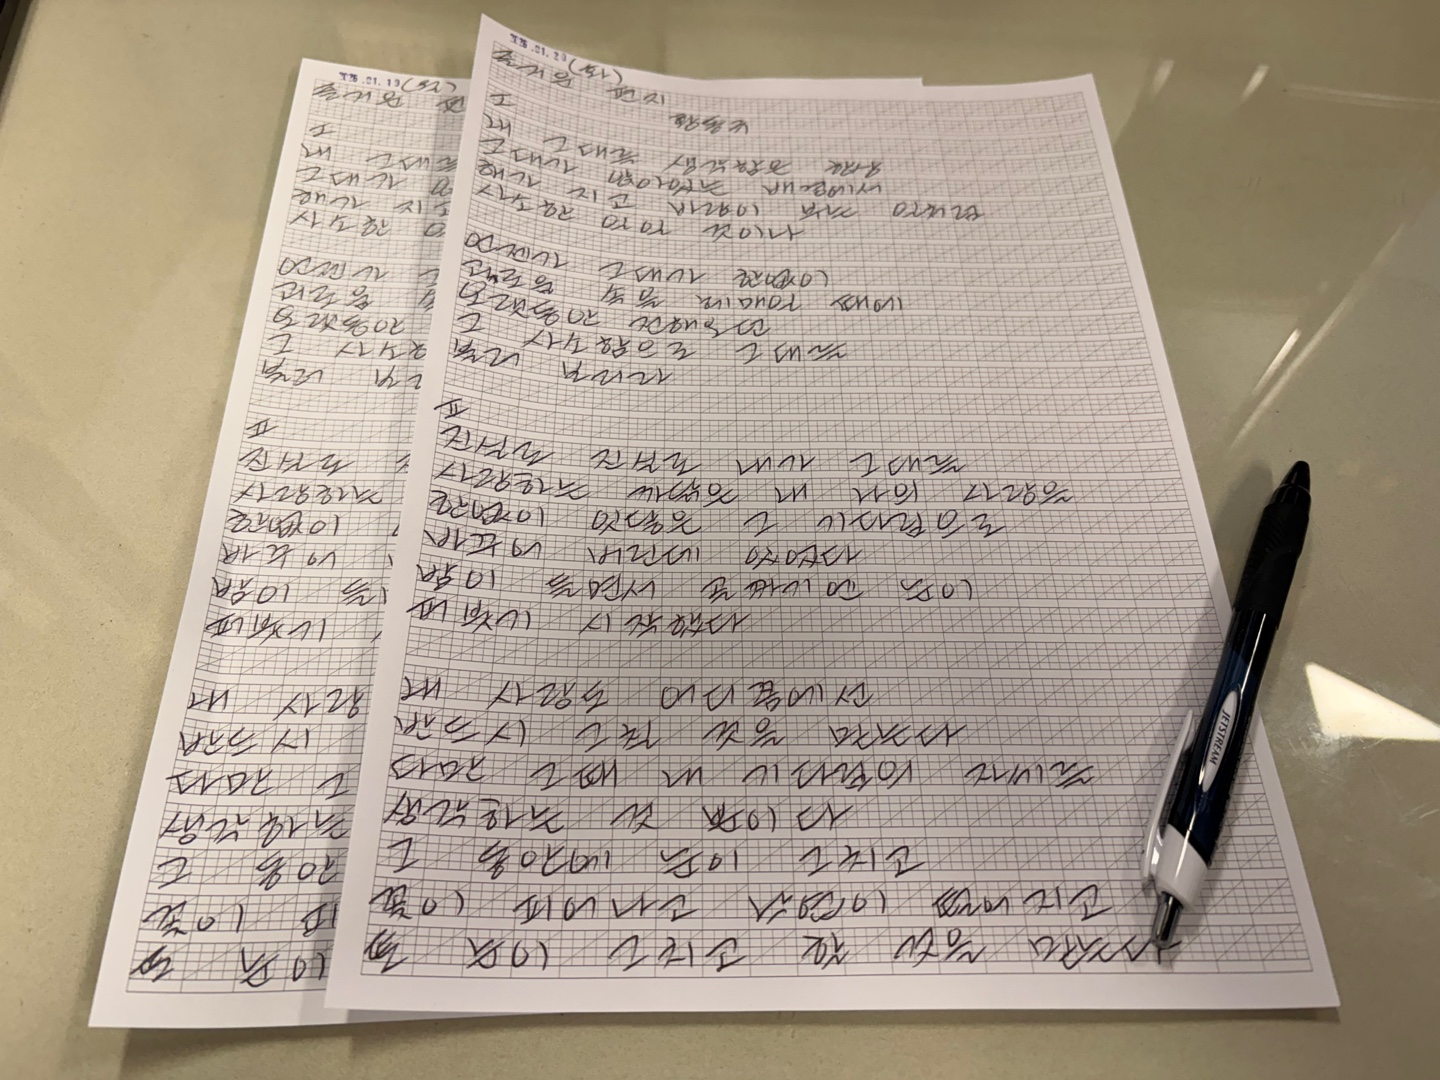 26.01.19(월)
즐거운 편
I
내 그대를
그대가
해가 지고
사소한
언젠가 그
괴로움 속
오랫동안
그 사소함
불러 보
II
진실로
사랑하는
한없이
바꾸어
밤이 들
퍼붓기
내 사랑
반드시
다만 그
생각하는
그 동안
꽃이 피
또 눈이
26.01.20(화)
즐거운 편지
황동규
I
내 그대를 생각함은 항상
그대가 앉아있는 배경에서
해가 지고 바람이 부는 일처럼
사소한 일일 것이나
언젠가 그대가 한없이
괴로움 속을 헤매일 때에
오랫동안 전해오던
그 사소함으로 그대를
불러 보리라
II
진실로 진실로 내가 그대를
사랑하는 까닭은 내 나의 사랑을
한없이 잇닿은 그 기다림으로
바꾸어 버린데 있었다
밤이 들면서 골짜기엔 눈이
퍼붓기 시작했다
내 사랑도 어디쯤에선
반드시 그칠 것을 믿는다
다만 그때 내 기다림의 자세를
생각하는 것 뿐이다
그 동안에 눈이 그치고
꽃이 피어나고 낙엽이 떨어지고
또 눈이 그치고 할 것을 믿는다
JETSTREAM